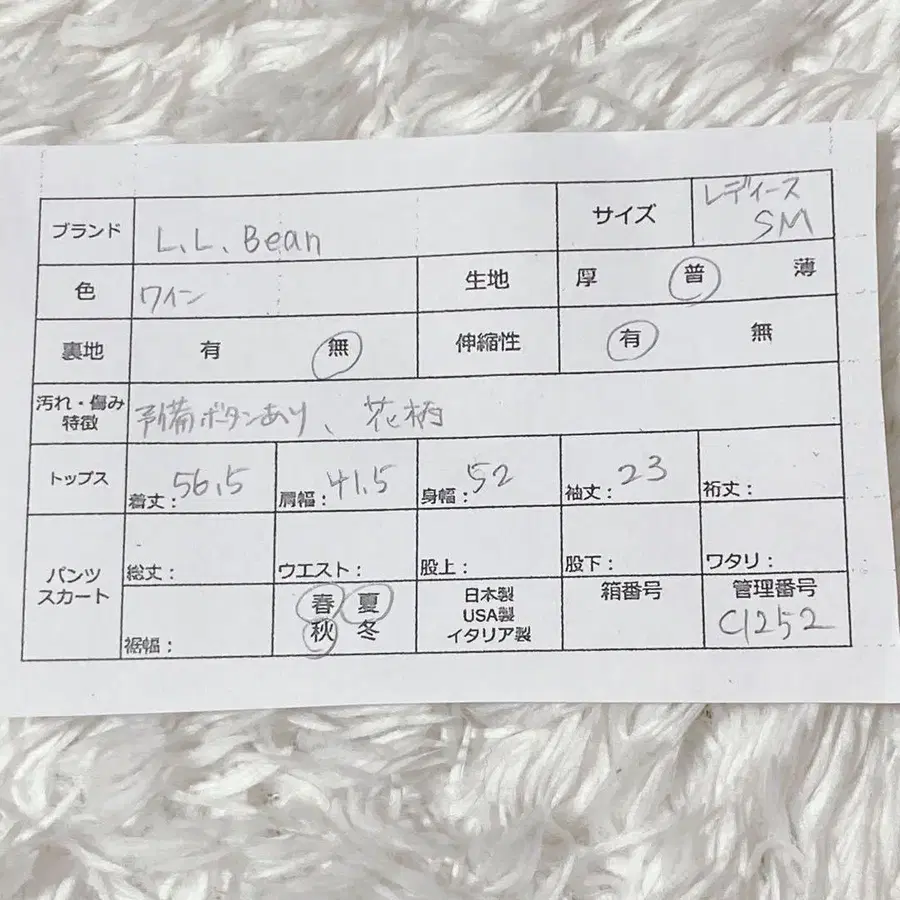 ブランド L.L.Bean サイズ レディース SM
色 ワイン 生地 厚 普 薄
裏地 有 無 伸縮性 有 無
汚れ・傷み
特徴 予備ボタンあり、花柄
トップス 着丈:56.5 肩幅:41.5 身幅:52 袖丈:23 裄丈:
パンツ
スカート
総丈: ウエスト: 股上: 股下: ワタリ:
裾幅:
春 夏
秋 冬
日本製
USA製
イタリア製
箱番号
管理番号
C1252